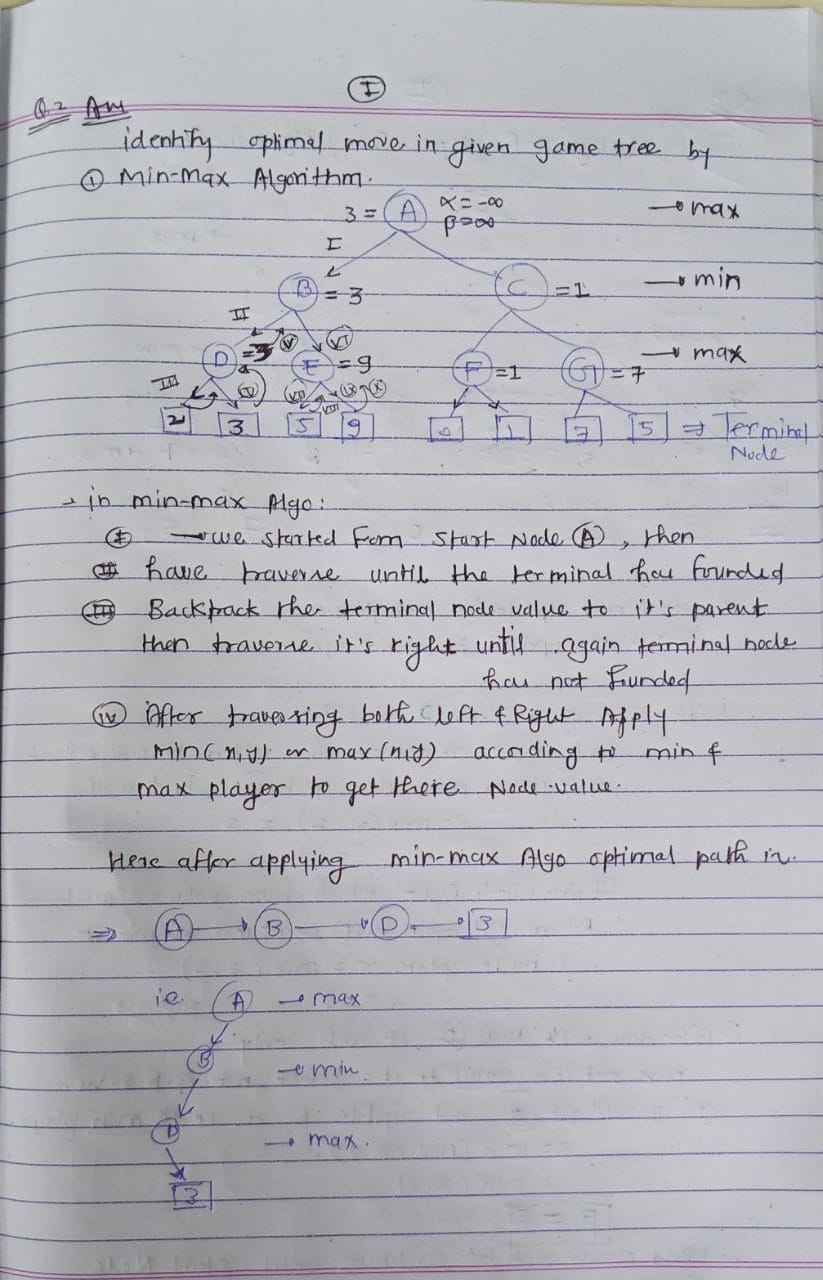 I
Q.2 Ans
identify optimal move in given game tree by
① Min-Max Algorithm.
3 = A α = -∞ → max
β = ∞
I
B = 3 C = 1 → min
II
V VI
D = 3 E = 9 F = 1 G = 7 → max
III IV VII VIII IX X
2 3 5 9 0 1 7 5 ⇒ Terminal
Node
→ in min-max Algo:
I → we started Fom start Node A, then
II have traverse until the terminal has founded
III Backtrack the terminal node value to it's parent
then traverse it's right until again terminal node
has not founded
IV After traversing both left & Right Apply
min(x,y) or max(x,y) according to min &
max player to get there Node value.
Here after applying min-max Algo optimal path is.
⇒ A → B → D → 3
ie. A → max
B → min.
D → max.
3